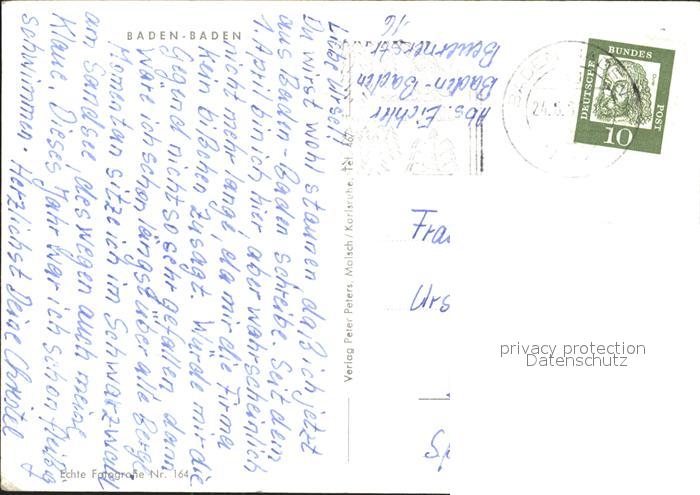 BADEN-BADEN
Liebe Ursel!
Du wirst wohl staunen daß ich jetzt
aus Baden-Baden schreibe. Seit dem
1. April bin ich hier aber wahrscheinlich
nicht mehr lange, da mir die Firma
kein bißchen zusagt. Würde mir die
Gegend nicht so sehr gefallen dann
wäre ich schon längst über alle Berge
Momentan sitze ich im Schwarzwald
am Sandsee, deswegen auch meine
Klaue. Dieses Jahr war ich schon fleißig
schwimmen. Herzlichst Deine
Echte Fotografie Nr. 164
Verlag Peter Peters, Malsch/Karlsruhe, Tel.
Abs. Eichler
Baden-Baden
Beuernerstr.
16
BADEN
24.6.
DEUTSCHE
BUNDES
POST
10
Frau
Urs
Sp
privacy protection
Datenschutz